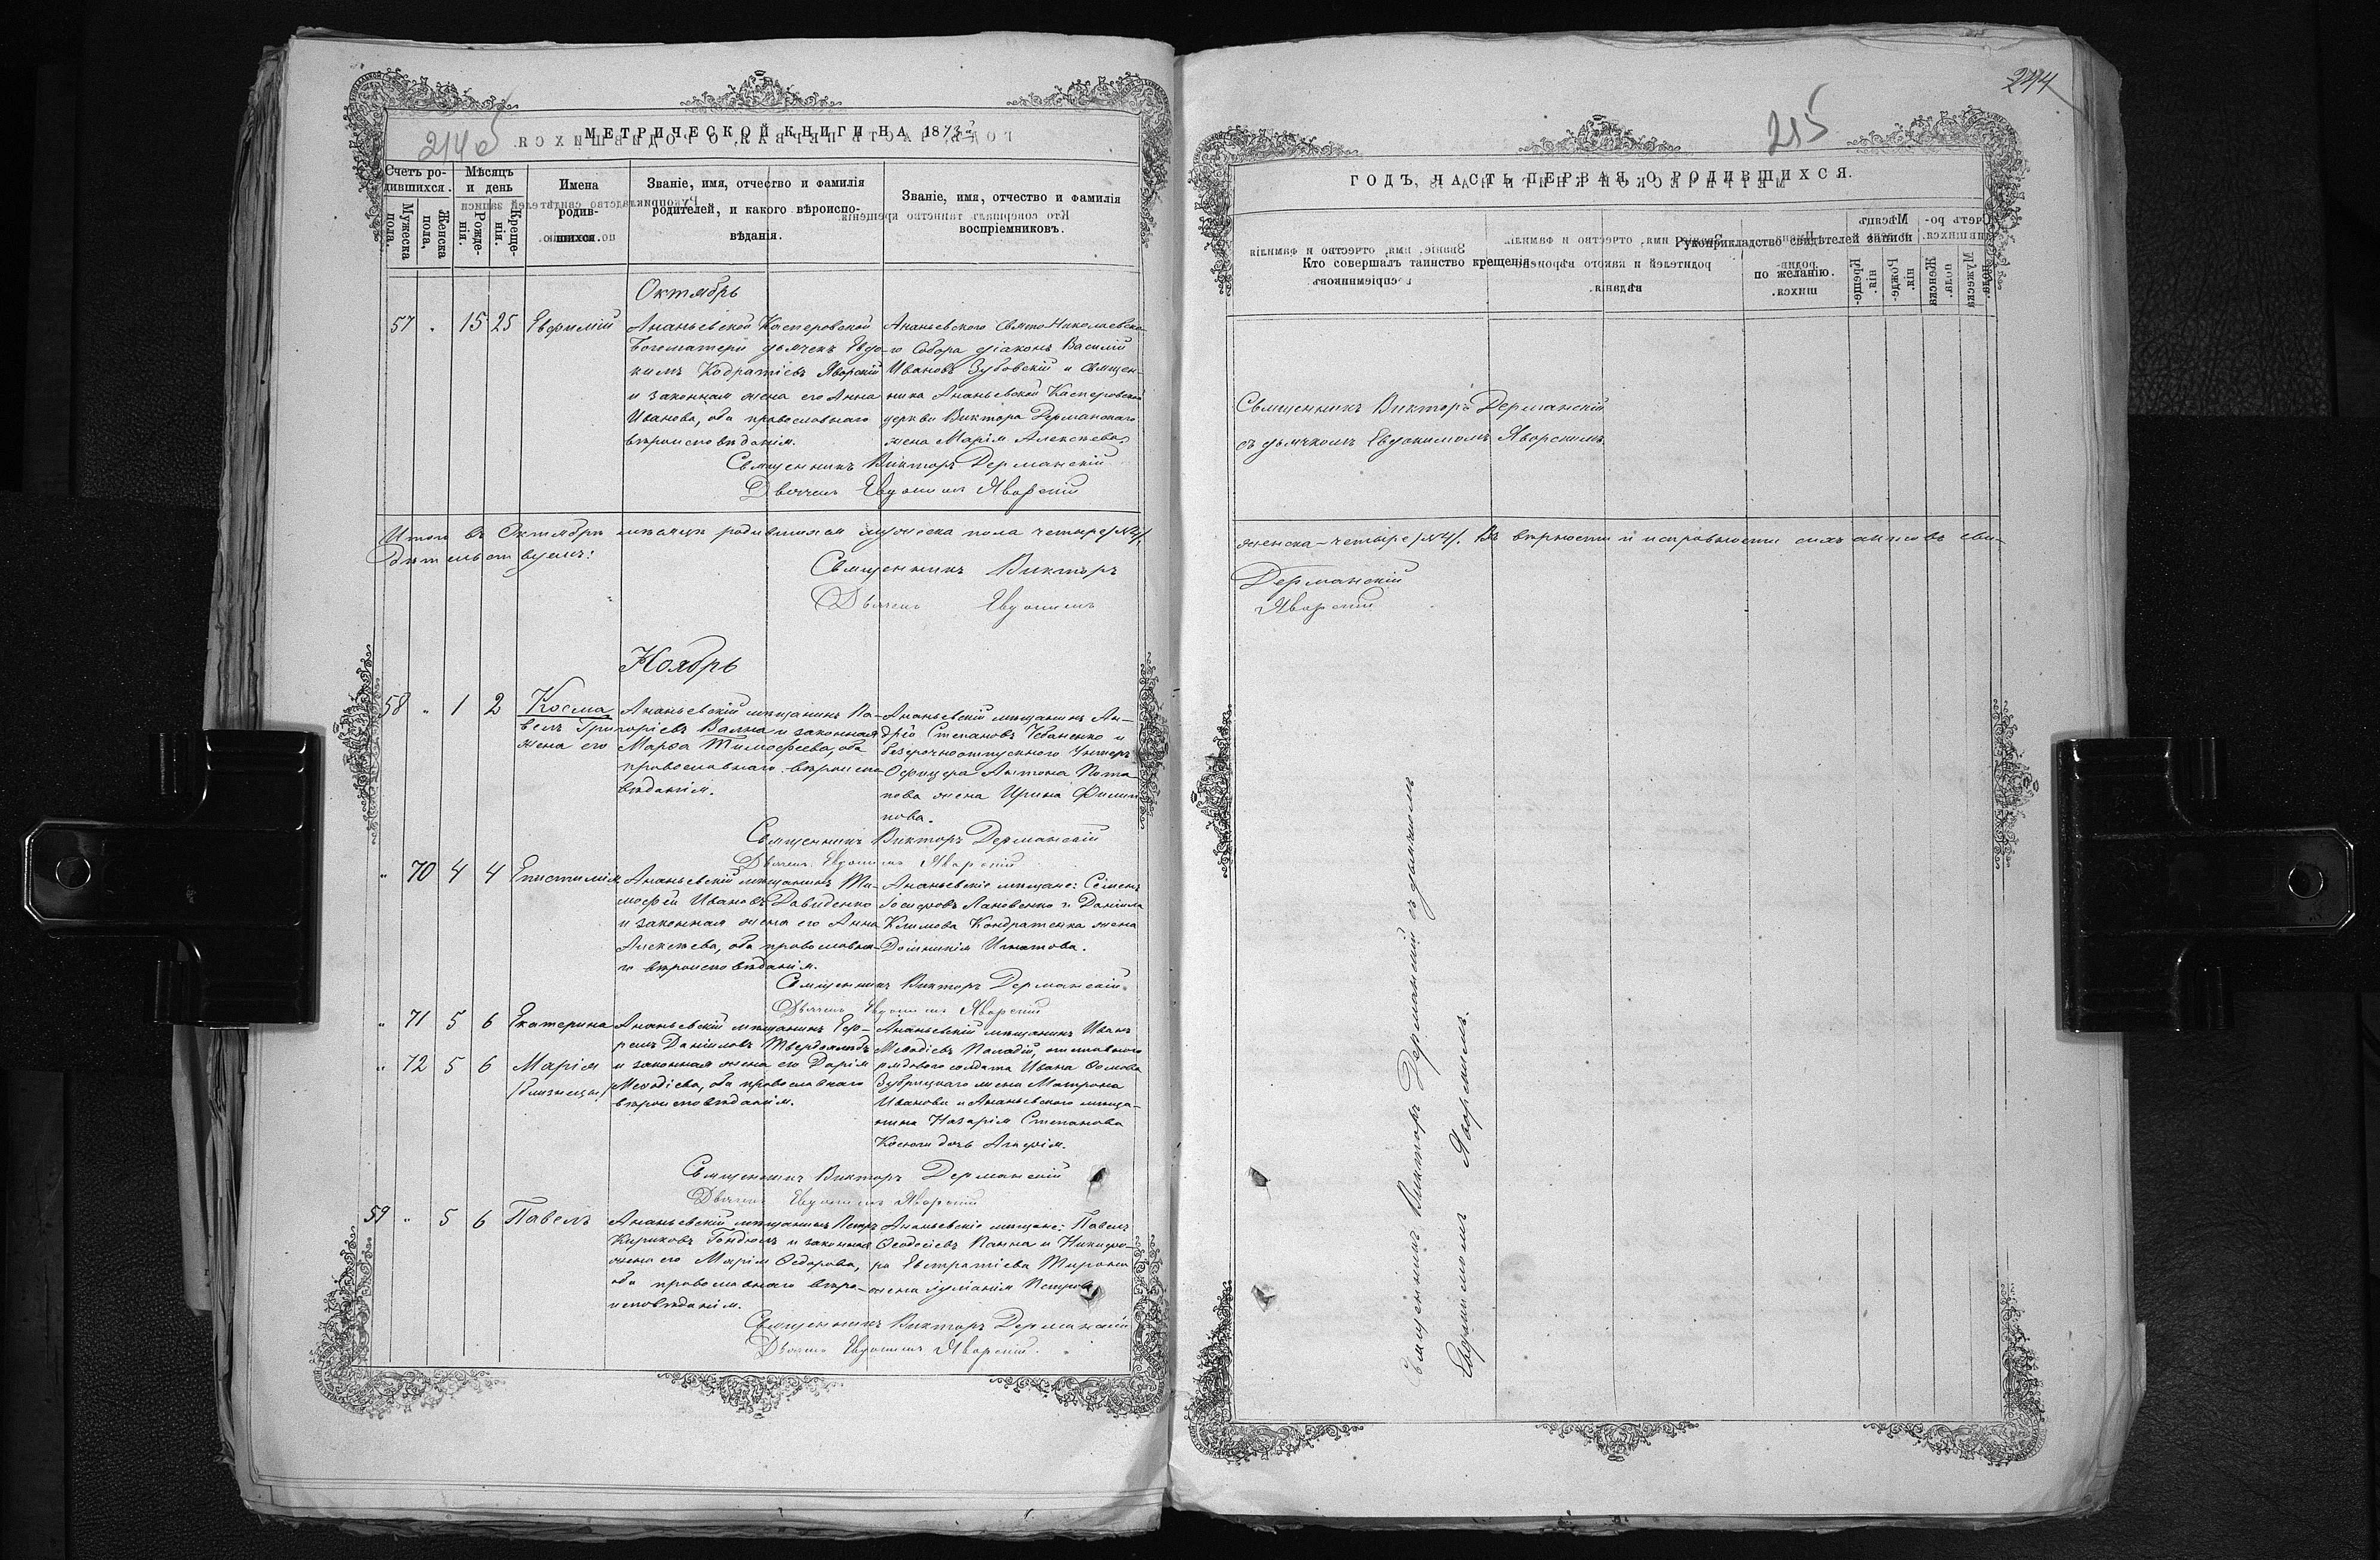 МЕТРИЧЕСКОЙ КНИГИ НА 1873й
Счетъ ро-
дившихся.
Мужеска
пола.
Женска
пола,
Мѣсяцъ
и день
Рожде-
нія.
Креще-
нія.
Имена
родив-
шихся.
Званіе, имя, отчество и фамилія
родителей, и какого вѣроиспо-
вѣданія.
Званіе, имя, отчество и фамилія
воспріемниковъ.
Октябрь
57 " 15 25 Евфимій
Ананьевской Касперовской
Богоматери дьячекъ Евдо-
кимъ Кодратіевъ Яворскій
и законная жена его Анна
Иванова, оба православнаго
вѣроисповѣданія.
Ананьевского Свято Николаевска-
го Собора діаконъ Василій
Ивановъ Зубовскій и священ-
ника Ананьевской Касперовской
церкви Виктора Дерманскаго
жена Марія Алексѣева.
Священникъ Викторъ Дерманскій
Дьячекъ Евдокимъ Яворскій
Итого въ Октябрѣ мѣсяцѣ родившихся мужеска пола четыре /№4/.
дѣтельствуемъ:
Священникъ Викторъ
Дьячекъ Евдокимъ
Ноябрь
58 " 1 2 Косма
Ананьевскій мѣщанинъ Па-
велъ Григоріевъ и законная
жена его Марѳа Тимофеева, оба
православнаго вѣроиспо-
вѣданія.
Ананьевскій мѣщанинъ Ан-
дрей Степановъ Чебаненко и
безсрочноотпускного Унтеръ
Офицера Антона Пота-
пова жена Ирина Филип-
пова.
Священникъ Викторъ Дерманскій
Дьячекъ Евдокимъ Яворскій
" 70 4 4 Епистимія
Ананьевскій мѣщанинъ Ти-
мофей Ивановъ Давиденко
и законная жена его Анна
Алексѣева, оба православна-
го вѣроисповѣданія.
Ананьевскіе мѣщане: Семенъ
Іосифовъ Лановенко и Даніила
Климова Кондратенка жена
Домникія Игнатова.
Священникъ Викторъ Дерманскій
Дьячекъ Евдокимъ Яворскій
" 71 5 6 Екатерина
" 72 5 6 Марія
/близнецы/
Ананьевскій мѣщанинъ Еф-
ремъ Даніиловъ
и законная жена его Дарія
Меѳодіева, оба православнаго
вѣроисповѣданія.
Ананьевскій мѣщанинъ Иванъ
Меѳодіевъ Паладій, отставного
рядового солдата Ивана Ѳомова
Зубрицкаго жена Матрона
Иванова и Ананьевского мѣща-
нина Назарія Степанова
дочь Агафія.
Священникъ Викторъ Дерманскій
Дьячекъ Евдокимъ Яворскій
59 " 5 6 Павелъ
Ананьевскій мѣщанинъ Петръ
Кириковъ и законная
жена его Марія Ѳедорова,
оба православнаго вѣро-
исповѣданія.
Ананьевскіе мѣщане: Павелъ
Ѳеодосіевъ Панна и Никифо-
ра Евстратіева Мирона
жена Іуліанія Петрова
Священникъ Викторъ Дерманскій
Дьячекъ Евдокимъ Яворскій
244
215
ГОДЪ, ЧАСТЬ ПЕРВАЯ, О РОДИВШИХСЯ.
Кто совершалъ таинство крещенія
Рукоприкладство свидѣтелей записи
по желанію.
Священникъ Викторъ Дерманскій
съ дьячкомъ Евдокимомъ Яворскимъ
женска – четыре /№4/. Въ вѣрности и исправности сихъ актовъ сви-
Дерманскій
Яворскій
Священникъ Викторъ Дерманскій съ дьячкомъ
Евдокимомъ Яворскимъ.